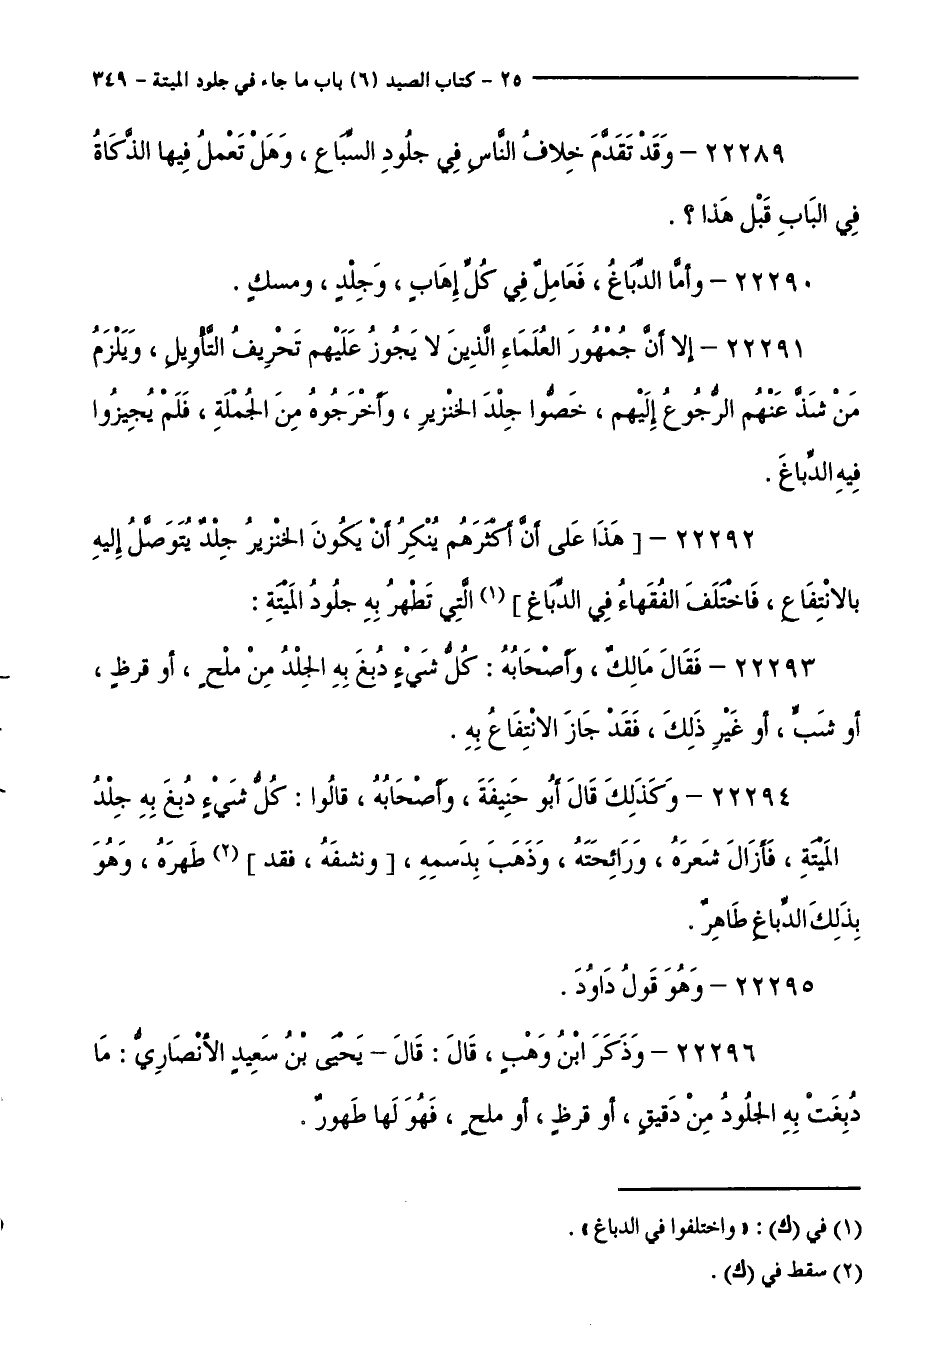 ٢٥ - كتاب الصيد (٦) باب ما جاء في جلود الميتة - ٣٤٩
٢٢٢٨٩ - وَقَدْ تَقَدَّمَ خِلافُ النَّاسِ فِي جلُودِ السِّبَاعِ ، وَهَلْ تَعْملُ فِيها الذَّكَاةُ
فِي البَابِ قَبْل هَذا ؟ .
٢٢٢٩٠ - وأمَّا الدِّبَاغُ ، فَعَامِلٌ فِي كُلِّ إِهَابٍ ، وَجِلْدٍ ، ومسكٍ .
٢٢٢٩١ - إلا أنَّ جُمْهُورَ العُلَمَاءِ الَّذِينَ لا يَجُوزُ عَلَيْهم تَحْرِيفُ التَّأْوِيلِ ، وَيَلْزَمُ
مَنْ شَذَّ عَنْهُم الرُّجُوعُ إِلَيْهم ، خَصُّوا جِلْدَ الخنْزِيرِ ، وَأَخْرَجُوهُ مِنَ الجُمْلَةِ ، فَلَمْ يُجِيزُوا
فِيهِ الدِّبَاغَ .
٢٢٢٩٢ - [ هَذَا عَلى أنَّ أكْثَرَهُم يُنْكِرُ أنْ يَكُونَ الخنْزِيرُ جِلْدٌ يُتَوَصَّلُ إِليهِ
بالانْتِفَاعِ ، فَاخْتَلَفَ الفُقَهاءُ فِي الدِّبَاغِ ] (١) الَّتِي تَطْهرُ بِهِ جلُودُ المَيْتَةِ :
٢٢٢٩٣ - فَقَالَ مَالِكٌ ، وَأَصْحَابُهُ : كُلُّ شَيْءٍ دُبغَ بِهِ الجِلْدُ مِنْ ملْحٍ ، أو قرظٍ ،
أو شَبٍّ ، أو غَيْرِ ذَلِكَ ، فَقَدْ جَازَ الانْتِفَاعُ بِهِ .
٢٢٢٩٤ - وَكَذَلِكَ قَالَ أَبُو حَنِيفَةَ ، وَأَصْحَابُهُ ، قالُوا : كُلُّ شَيْءٍ دُبغَ بِهِ جلْدُ
المَيْتَةِ ، فَأَزَالَ شَعرَهُ ، وَرَائِحَتَهُ ، وَذَهَبَ بِدَسمِهِ ، [ ونشفَهُ ، فقد ] (٢) طَهرَهُ ، وَهُوَ
بِذَلِكَ الدِّباغِ طَاهِرٌ .
٢٢٢٩٥ - وَهُوَ قَولُ دَاوُدَ .
٢٢٢٩٦ - وَذَكَرَ ابْنُ وَهْبٍ ، قَالَ : قَالَ - يَحْيَى بْنُ سَعِيدٍ الأَنْصَارِيُّ : مَا
دُبِغَتْ بِهِ الجلُودُ مِنْ دَقيقٍ ، أو قرظٍ ، أو ملحٍ ، فَهُوَ لَها طَهورٌ .
(١) في (ك) : « واختلفوا في الدباغ » .
(٢) سقط في (ك) .